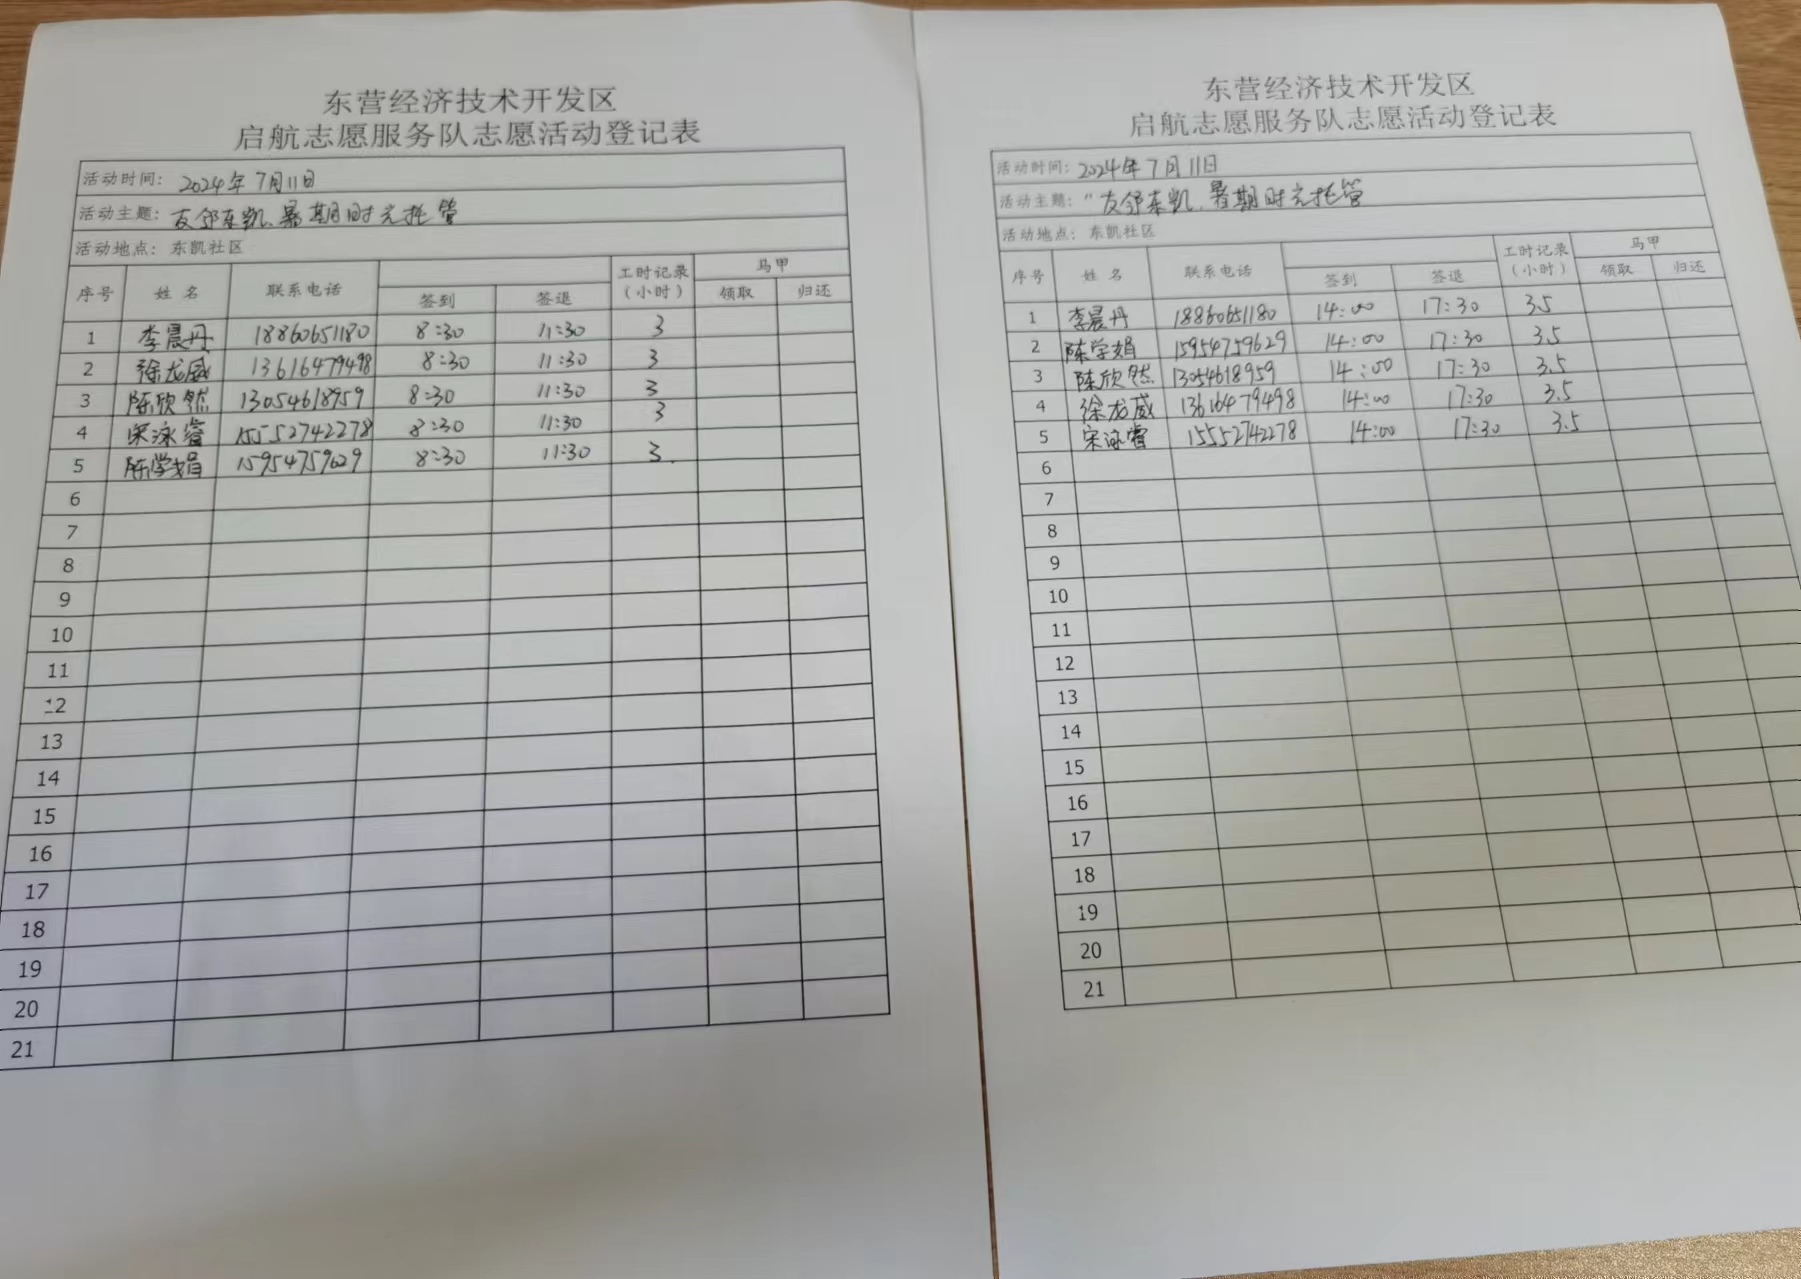 东营经济技术开发区
启航志愿服务队志愿活动登记表
活动时间: 2024年7月11日
活动主题: 友邻东凯、暑期时光托管
活动地点: 东凯社区
序号 姓 名 联系电话 签到 签退 工时记录(小时) 马甲 领取 归还
1 李晨丹 18860651180 8:30 11:30 3
2 徐龙威 13616479498 8:30 11:30 3
3 陈欣然 13054618959 8:30 11:30 3
4 宋泳睿 15552742278 8:30 11:30 3
5 陈学娟 15954759629 8:30 11:30 3.
6
7
8
9
10
11
12
13
14
15
16
17
18
19
20
21
东营经济技术开发区
启航志愿服务队志愿活动登记表
活动时间: 2024年7月11日
活动主题: "友邻东凯、暑期时光托管
活动地点: 东凯社区
序号 姓 名 联系电话 签到 签退 工时记录(小时) 马甲 领取 归还
1 李晨丹 18860651180 14:00 17:30 3.5
2 陈学娟 15954759629 14:00 17:30 3.5
3 陈欣然 13054618959 14:00 17:30 3.5
4 徐龙威 13616479498 14:00 17:30 3.5
5 宋泳睿 15552742278 14:00 17:30 3.5
6
7
8
9
10
11
12
13
14
15
16
17
18
19
20
21